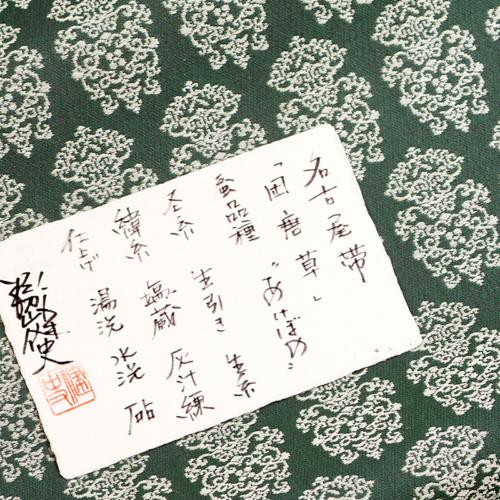 名古屋帯
「団唐草」
蚕品種 “あけぼの”
経糸 生引き 生糸
緯糸 塩蔵 灰汁練
仕上げ 湯洗 水洗 砧